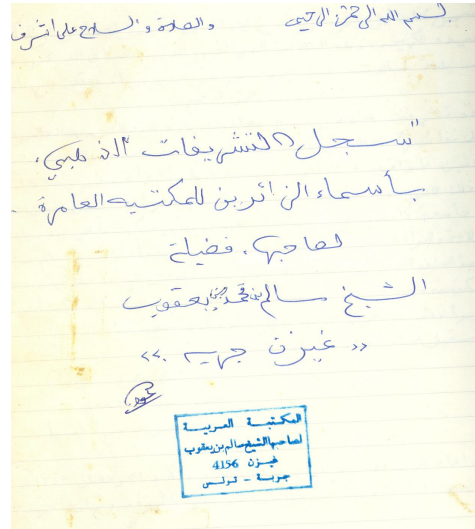 بسم الله الرحمن الرحيم والصلاة والسلام على أشرف
"سجل التشريفات" الذهبي.
بأسماء الزائرين للمكتبة العامرة
لصاحبها. فضيلة
الشيخ سالم بن محمد بن يعقوب
<< غيزن جربه. >>
المكتبة العربية
لصاحبها الشيخ سالم بن يعقوب
غيزن 4156
جربة - تونس